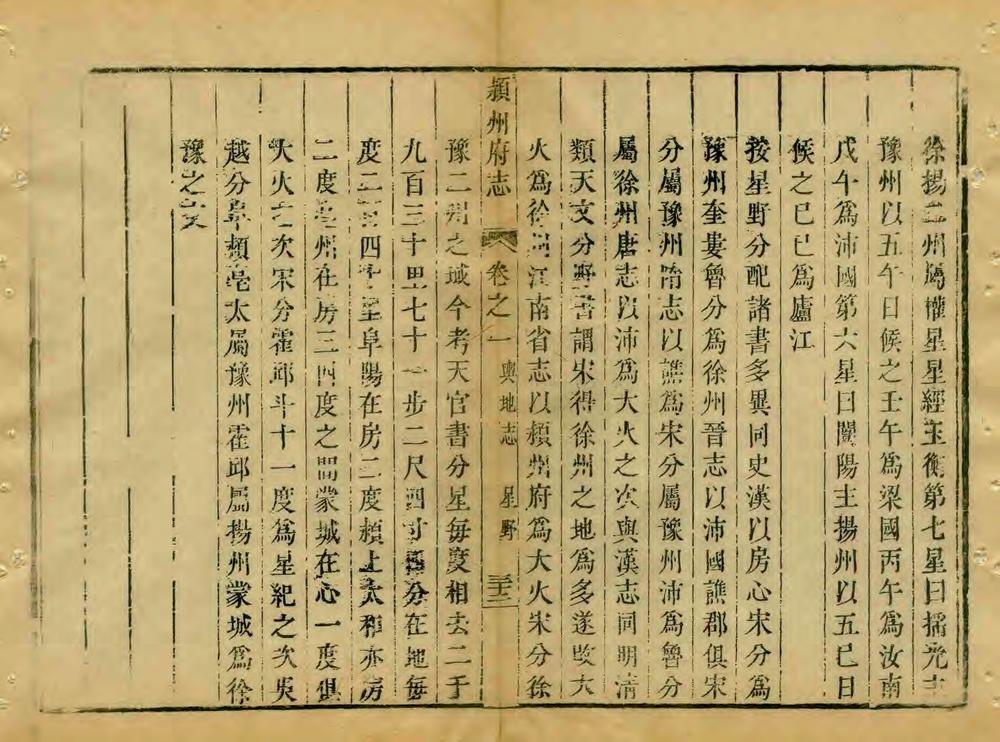 徐揚二州屬權星星經玉衡第七星曰搖光主
豫州以五午日候之壬午爲梁國丙午爲汝南
戊午爲沛國第六星曰闓陽主揚州以五巳日
候之巳巳爲廬江
按星野分配諸書多異同史漢以房心宋分爲
豫州奎婁魯分爲徐州晉志以沛國譙郡俱宋
分屬豫州隋志以譙爲宋分屬豫州沛爲魯分
屬徐州唐志以沛爲大火之次與漢志同明清
類天文分野書謂宋得徐州之地爲多遂改大
火爲徐州江南省志以頴州府爲大火宋分徐
頴州府志 卷之一 輿地志 星野 三
豫二州之域今考天官書分星每度相去二千
九百三十里七十一步二尺四寸分在地每
度二百四十里阜陽在房二度頴上太和亦房
二度亳州在房三四度之間蒙城在心一度俱
大火之次宋分霍邱斗十一度爲星紀之次吳
越分阜頴亳太屬豫州霍邱屬揚州蒙城爲徐
豫之交